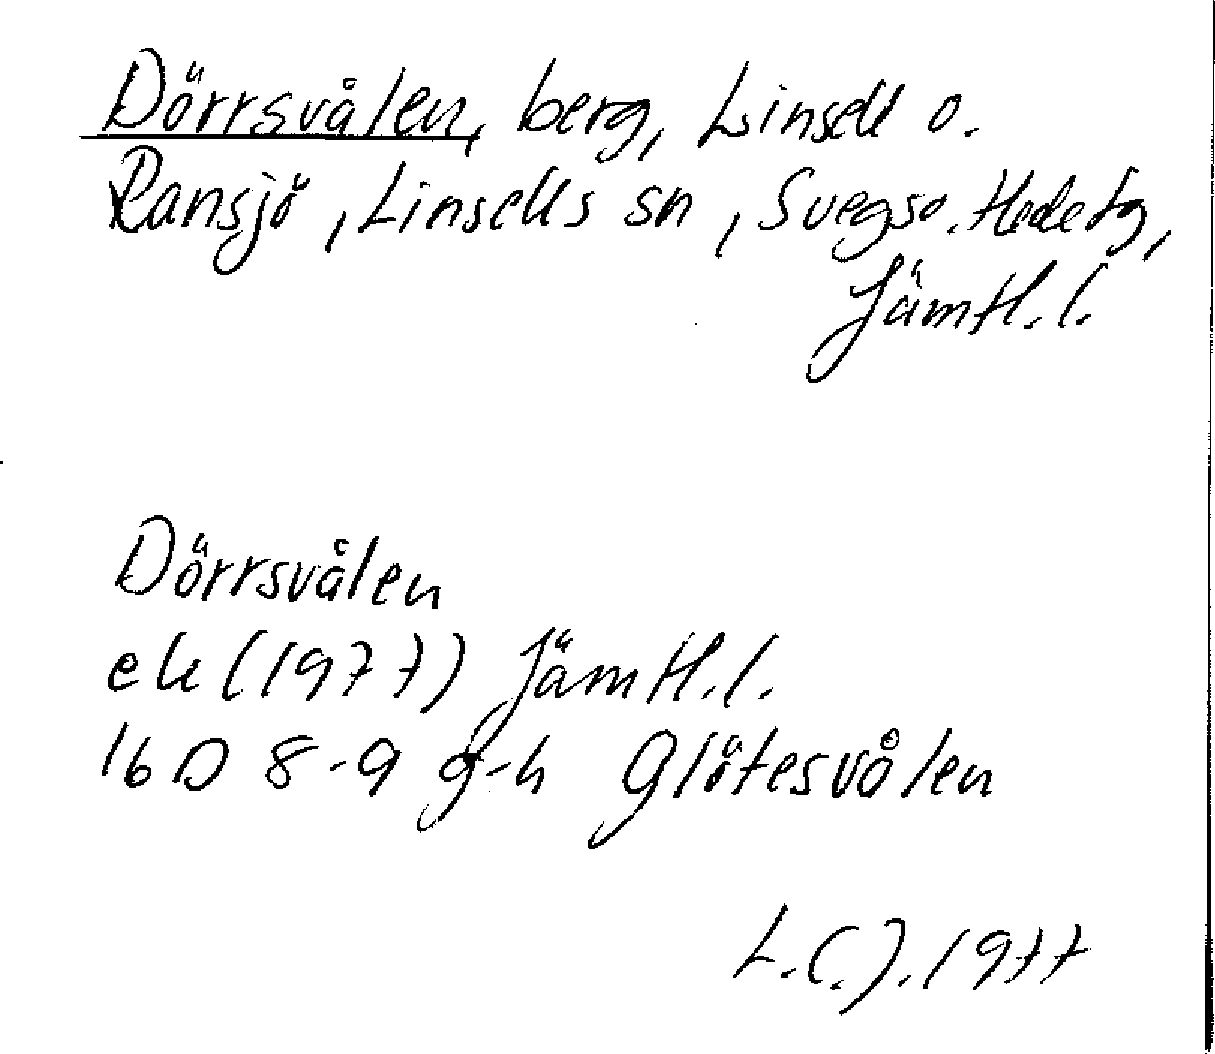 Dörrsvålen, berg, Linsell o.
Ransjö, Linsells sn, Svegs o. Hede tg,
Jämtl. l.
Dörrsvålen
ek (1977) Jämtl. l.
16 D 8-9 g-h Glötesvålen
L.C.J. 1977